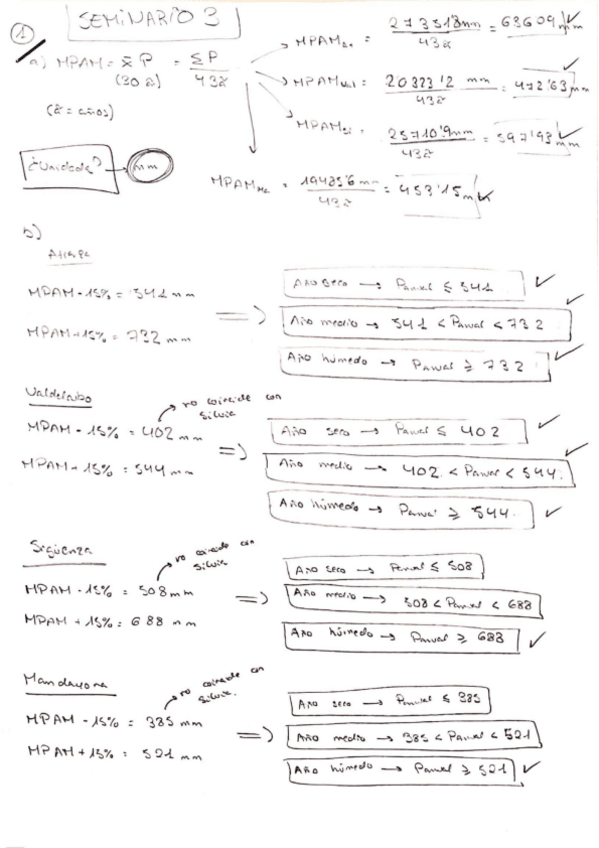 ① SEMINARIO 3
a) MPAM = x̄ P = ΣP / 43ã
(30 ã)
(ã = años)
MPAM = 27351'8mm / 43ã = 636'09 mm ✓
MPAM Val = 20323'2 mm / 43ã = 472'63 mm ✓
MPAM Si = 25710'9mm / 43ã = 597'93 mm ✓
MPAM Ma = 19485'6 mm / 43ã = 453'15 m ✓
¿Unidades? → mm
b)
Atienza
MPAM - 15% = 541 mm
MPAM + 15% = 732 mm
=> Año seco → Panual ≤ 541 ✓
Año medio → 541 < Panual < 732 ✓
Año húmedo → Panual ≥ 732 ✓
Valdelcubo
no coincide con Silvia
MPAM - 15% = 402 mm
MPAM + 15% = 544 mm
=> Año seco → Panual ≤ 402 ✓
Año medio → 402 < Panual < 544. ✓
Año húmedo → Panual ≥ 544. ✓
Sigüenza
no coincide con Silvia
MPAM - 15% = 508 mm
MPAM + 15% = 688 mm
=> Año seco → Panual ≤ 508
Año medio → 508 < Panual < 688
Año húmedo → Panual ≥ 688 ✓
Mandayona
no coincide con Silvia.
MPAM - 15% = 385 mm
MPAM + 15% = 521 mm
=> Año seco → Panual ≤ 385
Año medio → 385 < Panual < 521
Año húmedo → Panual ≥ 521 ✓